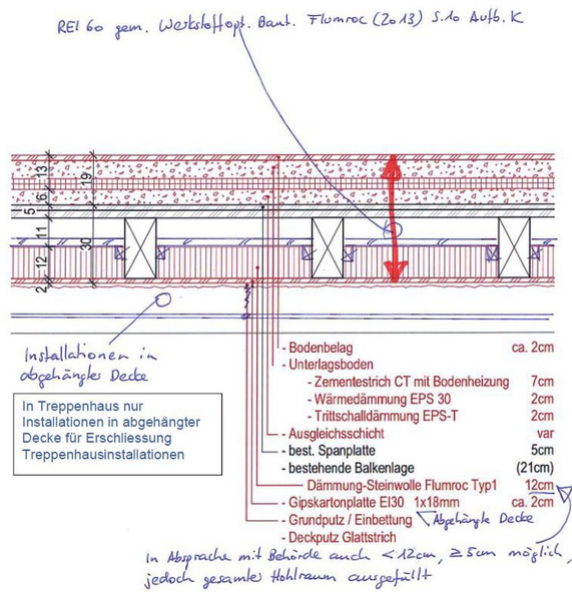 REI 60 gem. Werkstoffopt. Baut. Flumroc (2013) S.10 Aufb. K
13
19
6
5
11
30
12
2
Installationen in
abgehängter Decke
In Treppenhaus nur
Installationen in abgehängter
Decke für Erschliessung
Treppenhausinstallationen
- Bodenbelag ca. 2cm
- Unterlagsboden
- Zementestrich CT mit Bodenheizung 7cm
- Wärmedämmung EPS 30 2cm
- Trittschalldämmung EPS-T 2cm
- Ausgleichsschicht var
- best. Spanplatte 5cm
- bestehende Balkenlage (21cm)
Dämmung-Steinwolle Flumroc Typ1 12cm
- Gipskartonplatte EI30 1x18mm ca. 2cm
- Grundputz / Einbettung Abgehängte Decke
- Deckputz Glattstrich
In Absprache mit Behörde auch < 12cm, ≥ 5cm möglich,
jedoch gesamter Hohlraum ausgefüllt